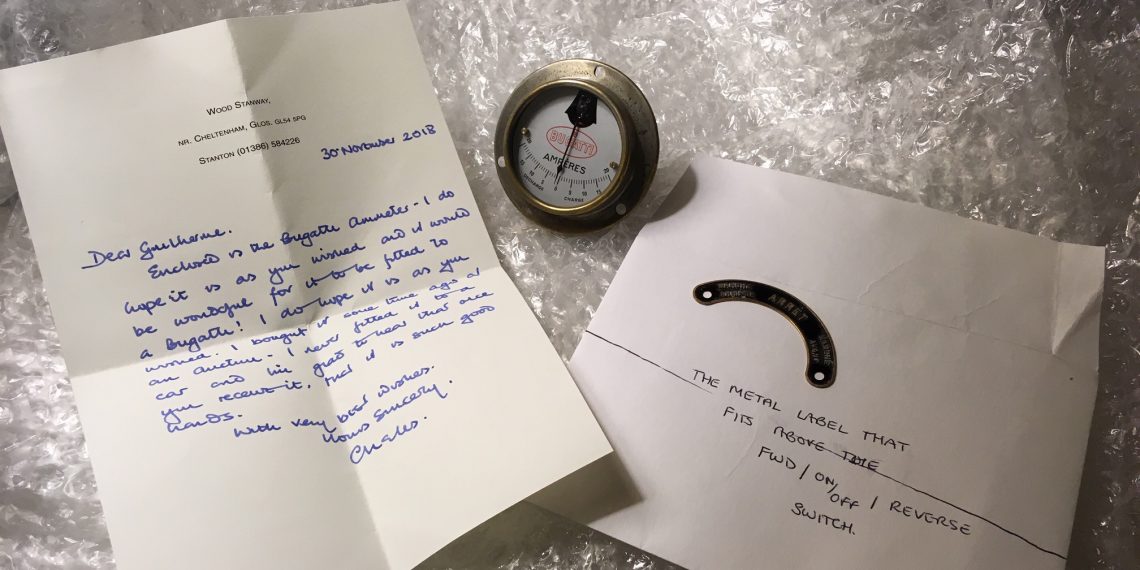 WOOD STANWAY,
NR. CHELTENHAM, GLOS. GL54 5PG
STANTON (01386) 584226
30 November 2018
Dear Guilherme.
Enclosed is the Bugatti Ammeter - I do
hope it is as you wished and it would
be wonderful for it to be fitted to
a Bugatti! I do hope it is as you
wished. I bought it some time ago at
an auction - I never fitted it to a
car and I'm glad to hear that once
you receive it, that it is such good
hands.
With very best wishes.
Yours Sincerely.
Charles.
BUGATTI
AMPÈRES
20 15 10 5 0 5 10 15 20
DISCHARGE CHARGE
ARRET
MARCHE
THE METAL LABEL THAT
FITS ABOVE THE
FWD / ON/OFF / REVERSE
SWITCH.